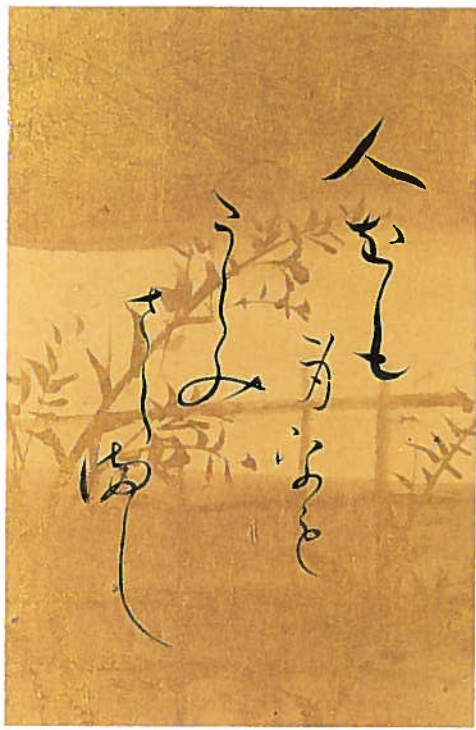 人をも
身をも
うらみ
さら満し